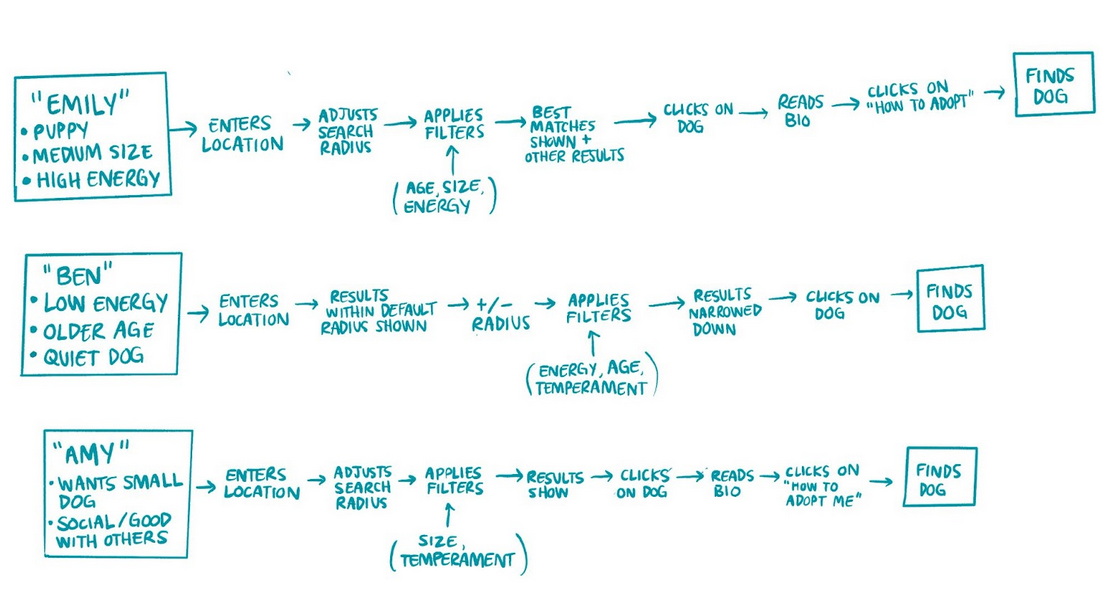 "EMILY"
• PUPPY
• MEDIUM SIZE
• HIGH ENERGY
ENTERS
LOCATION
ADJUSTS
SEARCH
RADIUS
APPLIES
FILTERS
(AGE, SIZE,
ENERGY)
BEST
MATCHES
SHOWN +
OTHER RESULTS
CLICKS ON
DOG
READS
BIO
CLICKS ON
"HOW TO ADOPT"
FINDS
DOG
"BEN"
• LOW ENERGY
• OLDER AGE
• QUIET DOG
ENTERS
LOCATION
RESULTS
WITHIN DEFAULT
RADIUS SHOWN
+/-
RADIUS
APPLIES
FILTERS
(ENERGY, AGE,
TEMPERAMENT)
RESULTS
NARROWED
DOWN
CLICKS ON
DOG
FINDS
DOG
"AMY"
• WANTS SMALL
DOG
• SOCIAL/GOOD
WITH OTHERS
ENTERS
LOCATION
ADJUSTS
SEARCH
RADIUS
APPLIES
FILTERS
(SIZE,
TEMPERAMENT)
RESULTS
SHOW
CLICKS
ON DOG
READS
BIO
CLICKS ON
"HOW TO
ADOPT ME"
FINDS
DOG